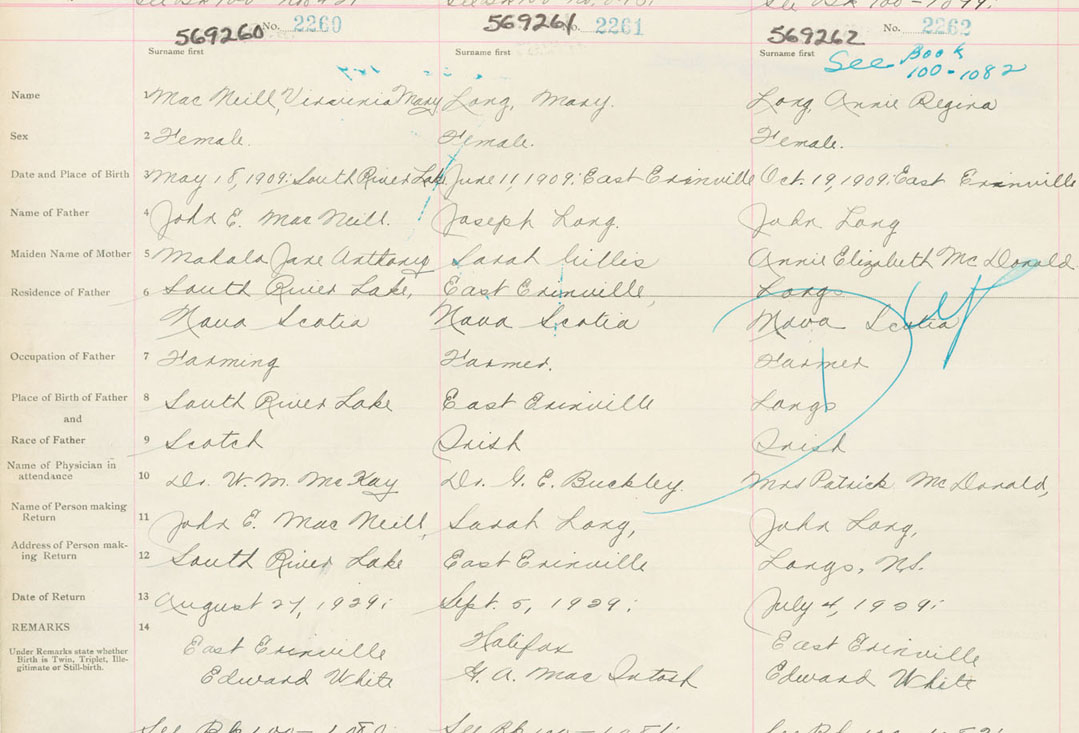 569260 No. 2260 569261 No. 2261 569262 No. 2262
Surname first Surname first Surname first
See Book
100-1082
Name 1 Mac Neill, Virginia Mary Long, Mary. Long, Annie Regina
Sex 2 Female. Female. Female.
Date and Place of Birth 3 May 18, 1909; South River Lake June 11, 1909; East Erinville Oct. 19, 1909; East Erinville
Name of Father 4 John E. Mac Neill. Joseph Long. John Long
Maiden Name of Mother 5 Mahala Jane Anthony Sarah Gillis Annie Elizabeth Mc Donald
Residence of Father 6 South River Lake, East Erinville, Longs
Nova Scotia Nova Scotia Nova Scotia
Occupation of Father 7 Farming Farmer. Farmer
Place of Birth of Father 8 South River Lake East Erinville Longs
and
Race of Father 9 Scotch Irish Irish
Name of Physician in
attendance 10 Dr. W. M. McKay Dr. G. E. Buckley. Mrs Patrick McDonald,
Name of Person making
Return 11 John E. Mac Neill, Sarah Long, John Long,
Address of Person mak-
ing Return 12 South River Lake East Erinville Longs, N.S.
Date of Return 13 August 27, 1929; Sept. 5, 1929; July 4, 1929;
REMARKS 14
Under Remarks state whether
Birth is Twin, Triplet, Ille-
gitimate or Still-birth.
East Erinville Halifax East Erinville
Edward White G. A. Mac Intosh Edward White